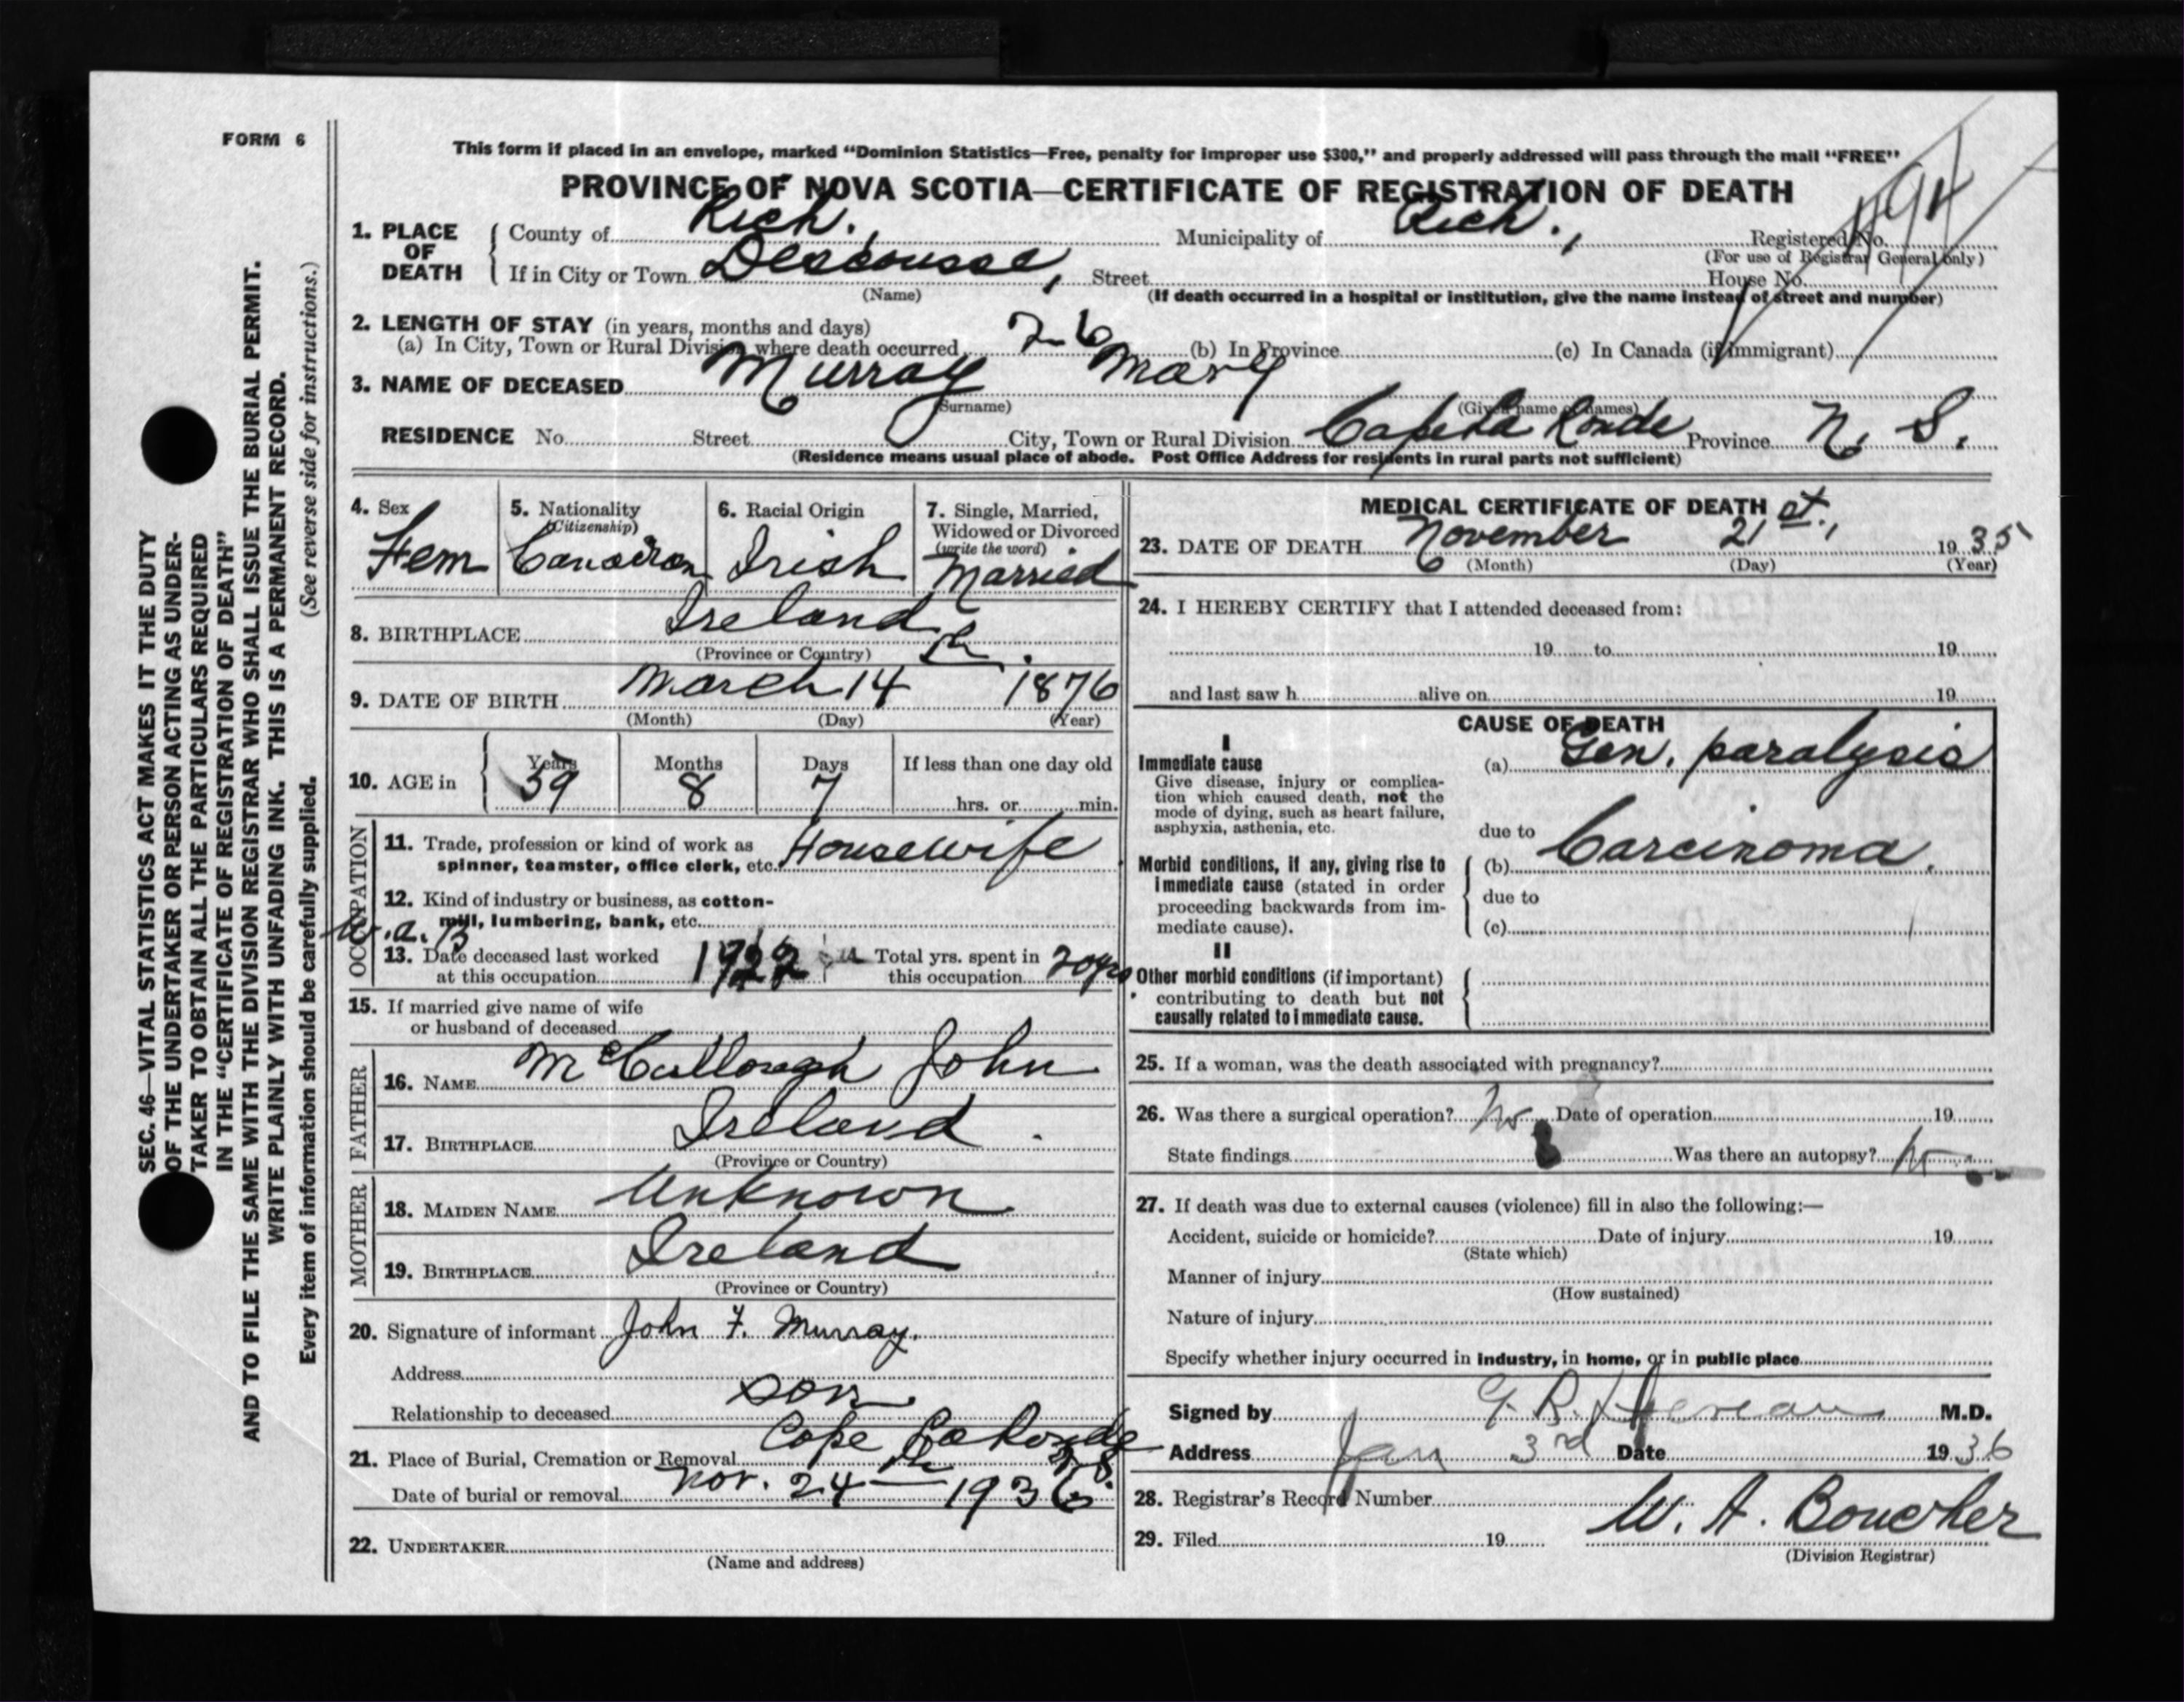 FORM 6
This form if placed in an envelope, marked “Dominion Statistics—Free, penalty for improper use $300,” and properly addressed will pass through the mail “FREE”
PROVINCE OF NOVA SCOTIA—CERTIFICATE OF REGISTRATION OF DEATH
1. PLACE OF DEATH County of Rich. Municipality of Rich., Registered No.
(For use of Registrar General only)
If in City or Town Descousse, Street House No.
(Name) (If death occurred in a hospital or institution, give the name instead of street and number)
2. LENGTH OF STAY (in years, months and days)
(a) In City, Town or Rural Division where death occurred 26 (b) In Province (c) In Canada (if immigrant)
3. NAME OF DECEASED Murray Mary
(Surname) (Given name or names)
RESIDENCE No. Street City, Town or Rural Division Cape La Ronde Province N. S.
(Residence means usual place of abode. Post Office Address for residents in rural parts not sufficient)
4. Sex Fem
5. Nationality (Citizenship) Canadian
6. Racial Origin Irish
7. Single, Married, Widowed or Divorced (write the word) Married
8. BIRTHPLACE Ireland
(Province or Country)
9. DATE OF BIRTH March 14 1876
(Month) (Day) (Year)
10. AGE in Years 59 Months 8 Days 7 If less than one day old
hrs. or min.
OCCUPATION
11. Trade, profession or kind of work as
spinner, teamster, office clerk, etc. Housewife
12. Kind of industry or business, as cotton-
mill, lumbering, bank, etc.
W.A.B
13. Date deceased last worked
at this occupation 1922 Total yrs. spent in
this occupation 20 yrs
15. If married give name of wife
or husband of deceased
FATHER
16. NAME McCullough John
17. BIRTHPLACE Ireland
(Province or Country)
MOTHER
18. MAIDEN NAME Unknown
19. BIRTHPLACE Ireland
(Province or Country)
20. Signature of informant John F. Murray.
Address
Relationship to deceased son
21. Place of Burial, Cremation or Removal Cape La Ronde N.S.
Date of burial or removal Nov. 24th 1936
22. UNDERTAKER
(Name and address)
MEDICAL CERTIFICATE OF DEATH
23. DATE OF DEATH November 21st, 1935
(Month) (Day) (Year)
24. I HEREBY CERTIFY that I attended deceased from:
19 to 19
and last saw h alive on 19
CAUSE OF DEATH
I
Immediate cause (a) Gen. paralysis
Give disease, injury or complica-
tion which caused death, not the
mode of dying, such as heart failure,
asphyxia, asthenia, etc.
due to
Morbid conditions, if any, giving rise to (b) Carcinoma.
immediate cause (stated in order
proceeding backwards from im- due to
mediate cause). (c)
II
Other morbid conditions (if important)
contributing to death but not
causally related to immediate cause.
25. If a woman, was the death associated with pregnancy?
26. Was there a surgical operation? No Date of operation 19
State findings Was there an autopsy? No
27. If death was due to external causes (violence) fill in also the following:—
Accident, suicide or homicide? Date of injury 19
(State which)
Manner of injury
(How sustained)
Nature of injury
Specify whether injury occurred in industry, in home, or in public place
Signed by G. R. M.D.
Address Jan 3rd Date 1936
28. Registrar's Record Number
29. Filed 19 W. A. Boucher
(Division Registrar)
SEC. 46—VITAL STATISTICS ACT MAKES IT THE DUTY
OF THE UNDERTAKER OR PERSON ACTING AS UNDER-
TAKER TO OBTAIN ALL THE PARTICULARS REQUIRED
IN THE “CERTIFICATE OF REGISTRATION OF DEATH”
AND TO FILE THE SAME WITH THE DIVISION REGISTRAR WHO SHALL ISSUE THE BURIAL PERMIT.
WRITE PLAINLY WITH UNFADING INK. THIS IS A PERMANENT RECORD.
Every item of information should be carefully supplied. (See reverse side for instructions.)